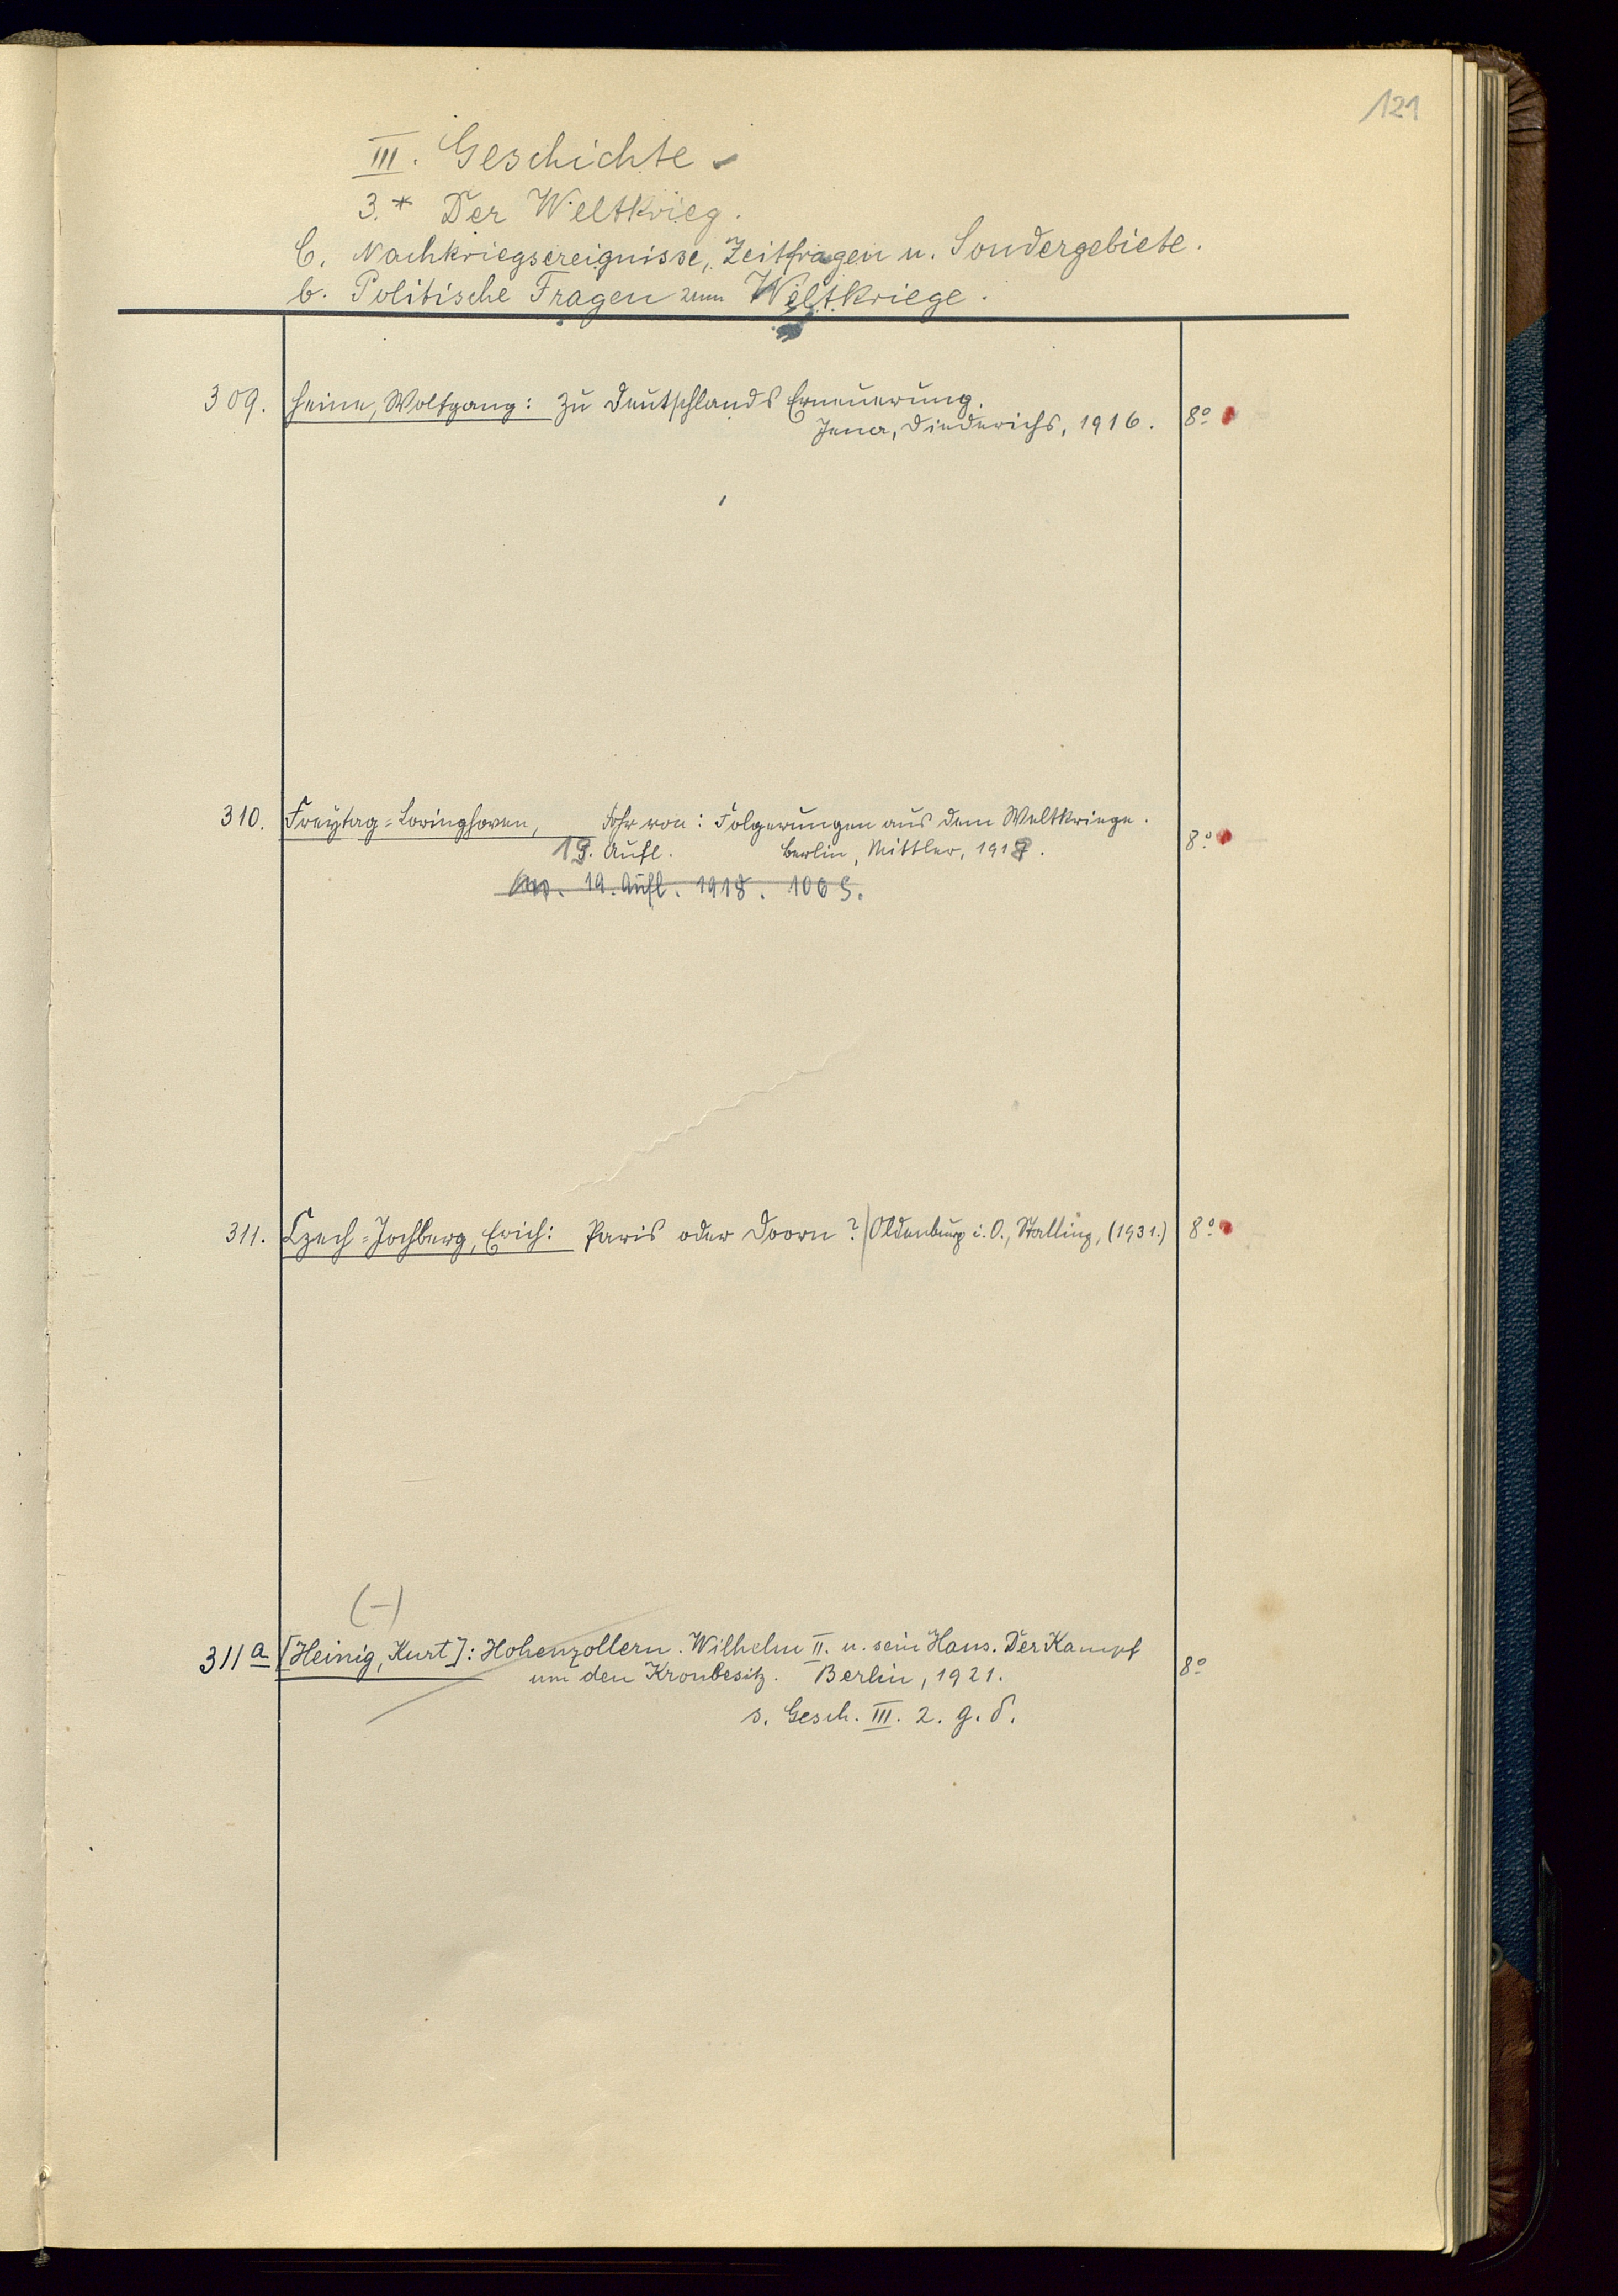 121
III. Geschichte.
3.* Der Weltkrieg.
C. Nachkriegsereignisse, Zeitfragen u. Sondergebiete.
b. Politische Fragen zum Weltkriege.
309. Heine, Wolfgang: Zu Deutschlands Erneuerung.
Jena, Diederichs, 1916. 8°
310. Freytag-Loringhoven, Frhr von: Folgerungen aus dem Weltkriege.
19. Aufl. Berlin, Mittler, 1918. 8°
19. Aufl. 1918. 106 S.
311. Czech-Jochberg, Erich: Paris oder Doorn? Oldenburg i. O., Stalling, (1931.) 8°
(-)
311a [Heinig, Kurt]: Hohenzollern. Wilhelm II. u. sein Haus. Der Kampf
um den Kronbesitz. Berlin, 1921. 8°
s. Gesch. III. 2. g. δ.